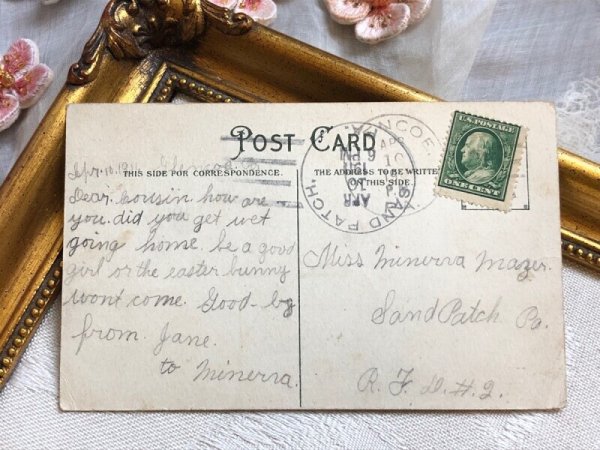 POST CARD
THIS SIDE FOR CORRESPONDENCE.
THE ADDRESS TO BE WRITTEN
ON THIS SIDE.
U.S. POSTAGE
ONE CENT
SAND PATCH,
APR
6 PM
GLENCOE
APR
10
Apr. 10, 1911 Glencoe Pa
Dear Cousin how are
you. did you get wet
going home. be a good
girl or the easter bunny
wont come. Good-by
from Jane.
to Minerva.
Miss Minerva
Sand Patch Pa.
R. F. D. #2.